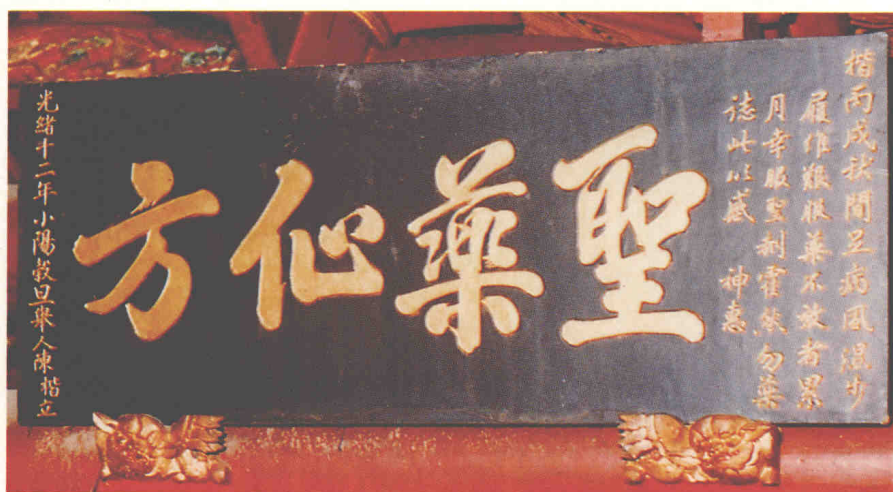 楷丙戌秋間足病風濕步
履作艱服藥不效者累
月幸服聖劑霍然勿藥
誌此以感 神惠
聖藥仙方
光緒十二年小陽穀旦舉人陳楷立